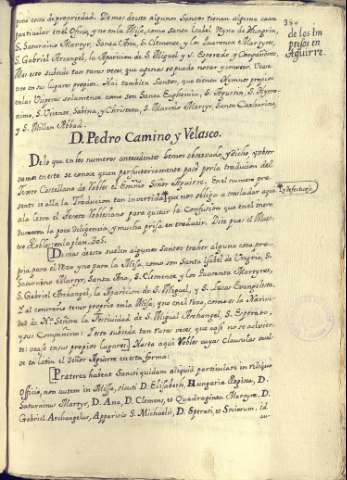 pias cosas de propriedad. Demas desto algunos Santos tienen alguna cosa
particular en el Oficio, y no en la Missa, como Santa Isabel Reyna de Hungria,
S. Saturnino Martyr, Santa Ana, S. Clemente, y los Quarenta Martyres,
S. Gabriel Arcangel, la Aparicion de S. Miguel y S. Esperato y Compañeros.
Mas esto sucede tan raras veces, que apenas se puede notar y mover. Vean-
se en sus lugares propios. Hai tambien Santos, que tienen Hymnos propios
en las Visperas solamente como son Santa Euphemia, S. Agustin, S. Hyero-
nimo, S. Vicente, Sabina, y Christeta, S. Marcelo Martyr, Santa Catharina,
y S. Millan Abbad.
380
de los Im
presos en
Aguirre.
D. Pedro Camino y Velasco.
De lo que en los numeros antecedentes hemos observado, y dicho, sobre
en esto se conoce quan perfunctoriamente pasó por la traducion del
Texto Castellano de Robles el Eminmo Señor Aguirre. En el numero pre-
sente se alla la Traducion tan invertida, que nos obliga a trasladar aqui
a la letra el Texto Roblesiano para quitar la Confusion que en el mere
numero la poca diligencia, y mucha prisa en traducir. Dice pues el Maes-
tro Robles en la plan. 305.
Demas desto suelen algunos Santos traher alguna cosa pro-
pria para el Rezo y no para la Missa, como son Santa Isabel de Ungria, S.
Saturnino Martyr, Santa Ana, S. Clemente y los Quarenta Martyres,
S. Gabriel Archangel, la Aparicion de S. Miguel, y S. Lucas Evangelista.
I al contrario tienen proprio en la Missa, y no en el Rezo, como es la Nativi-
dad de Na. Señora, la Festividad de S. Miguel Archangel, S. Esperato,
y sus Compañeros: I esto sucede tan raras veces, que aqui no se advier-
te: vealo en sus propios lugares] Hasta aqui Robles cuyas clausulas vuel-
ve en latin el Señor Aguirre en esta forma:
Præterea habent Sancti quidam aliquid particularis in reliquo
Officio, non autem in Missa, sicuti D. Elisabeth, Hungariæ Regina, D.
Saturninus Martyr, D. Ana, D. Clemens, et Quadraginta Martyres, D.
Gabriel Archangelus, Apparitio S. Michaelis, D. Sperati, et Sociorum. id